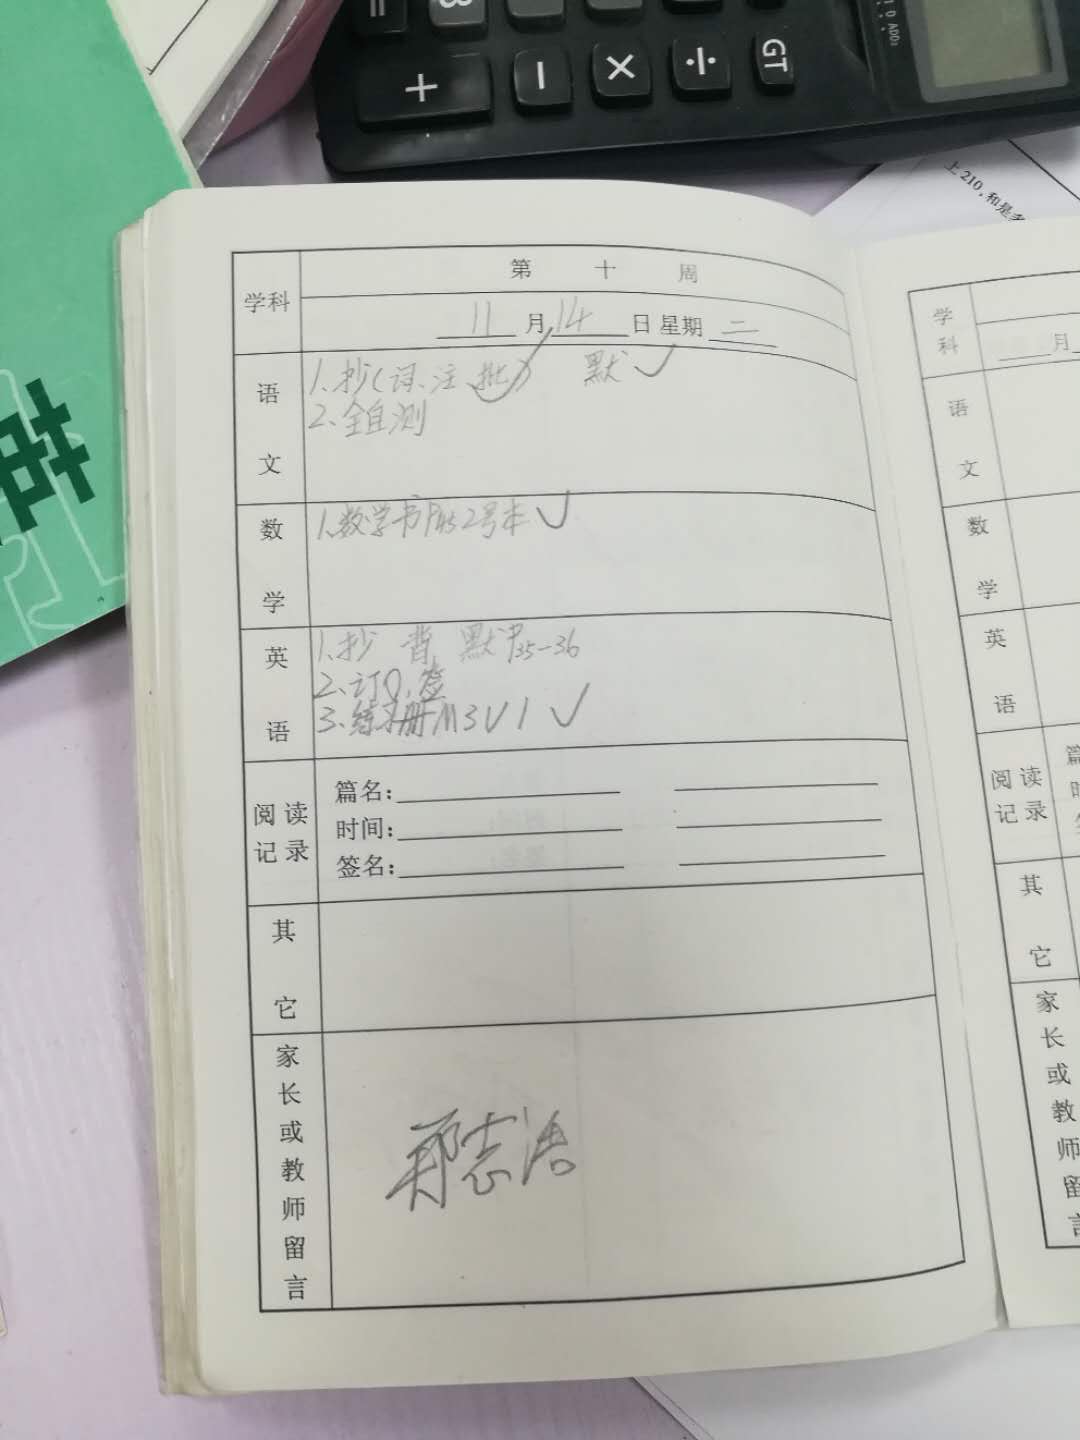 = 8
+ − × ÷ GT
上210,和是多
学科 第 十 周
11 月 14 日 星期 二
语文
1、抄(词、注、批) 默 ✓
2、全自测
数学
1、数学书P45 2号本 ✓
英语
1、抄 背 默 P35-36
2、订Q、签
3、练习册M3U1 ✓
阅读记录
篇名:
时间:
签名:
其它
家长或教师留言
学科
月
语文
数学
英语
阅读记录
篇
时
签
其它
家长或教师留言